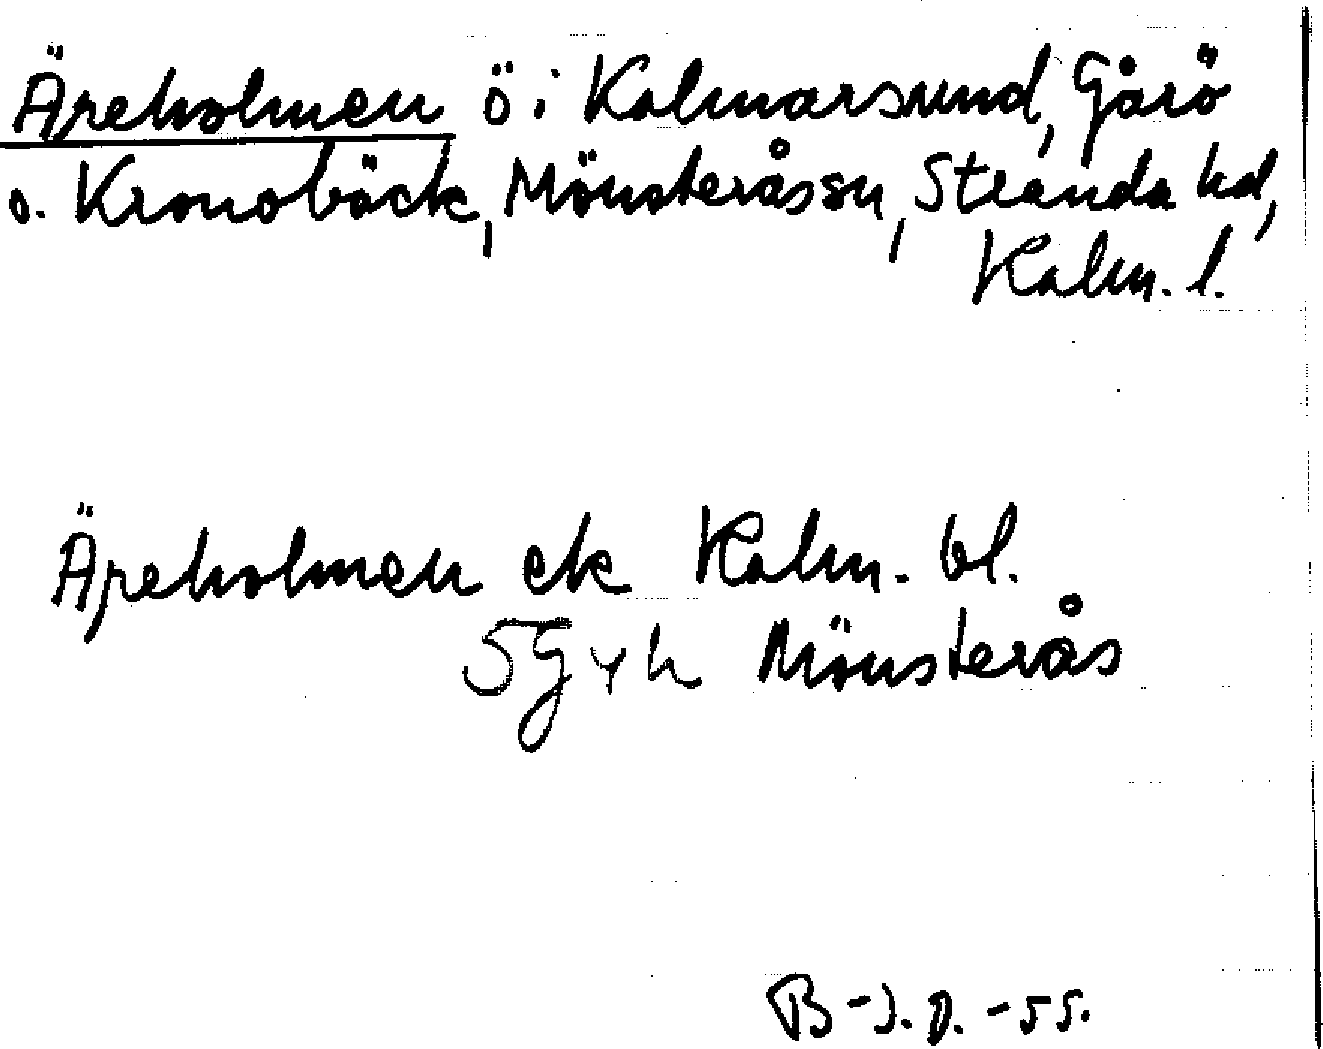 Äreholmen ö i Kalmarsund, Gårö
o. Kronobäck, Mönsteråssn, Stranda hd,
Kalm. l.
Äreholmen ek Kalm. bl.
5G y h Mönsterås
B-J.D. -55.